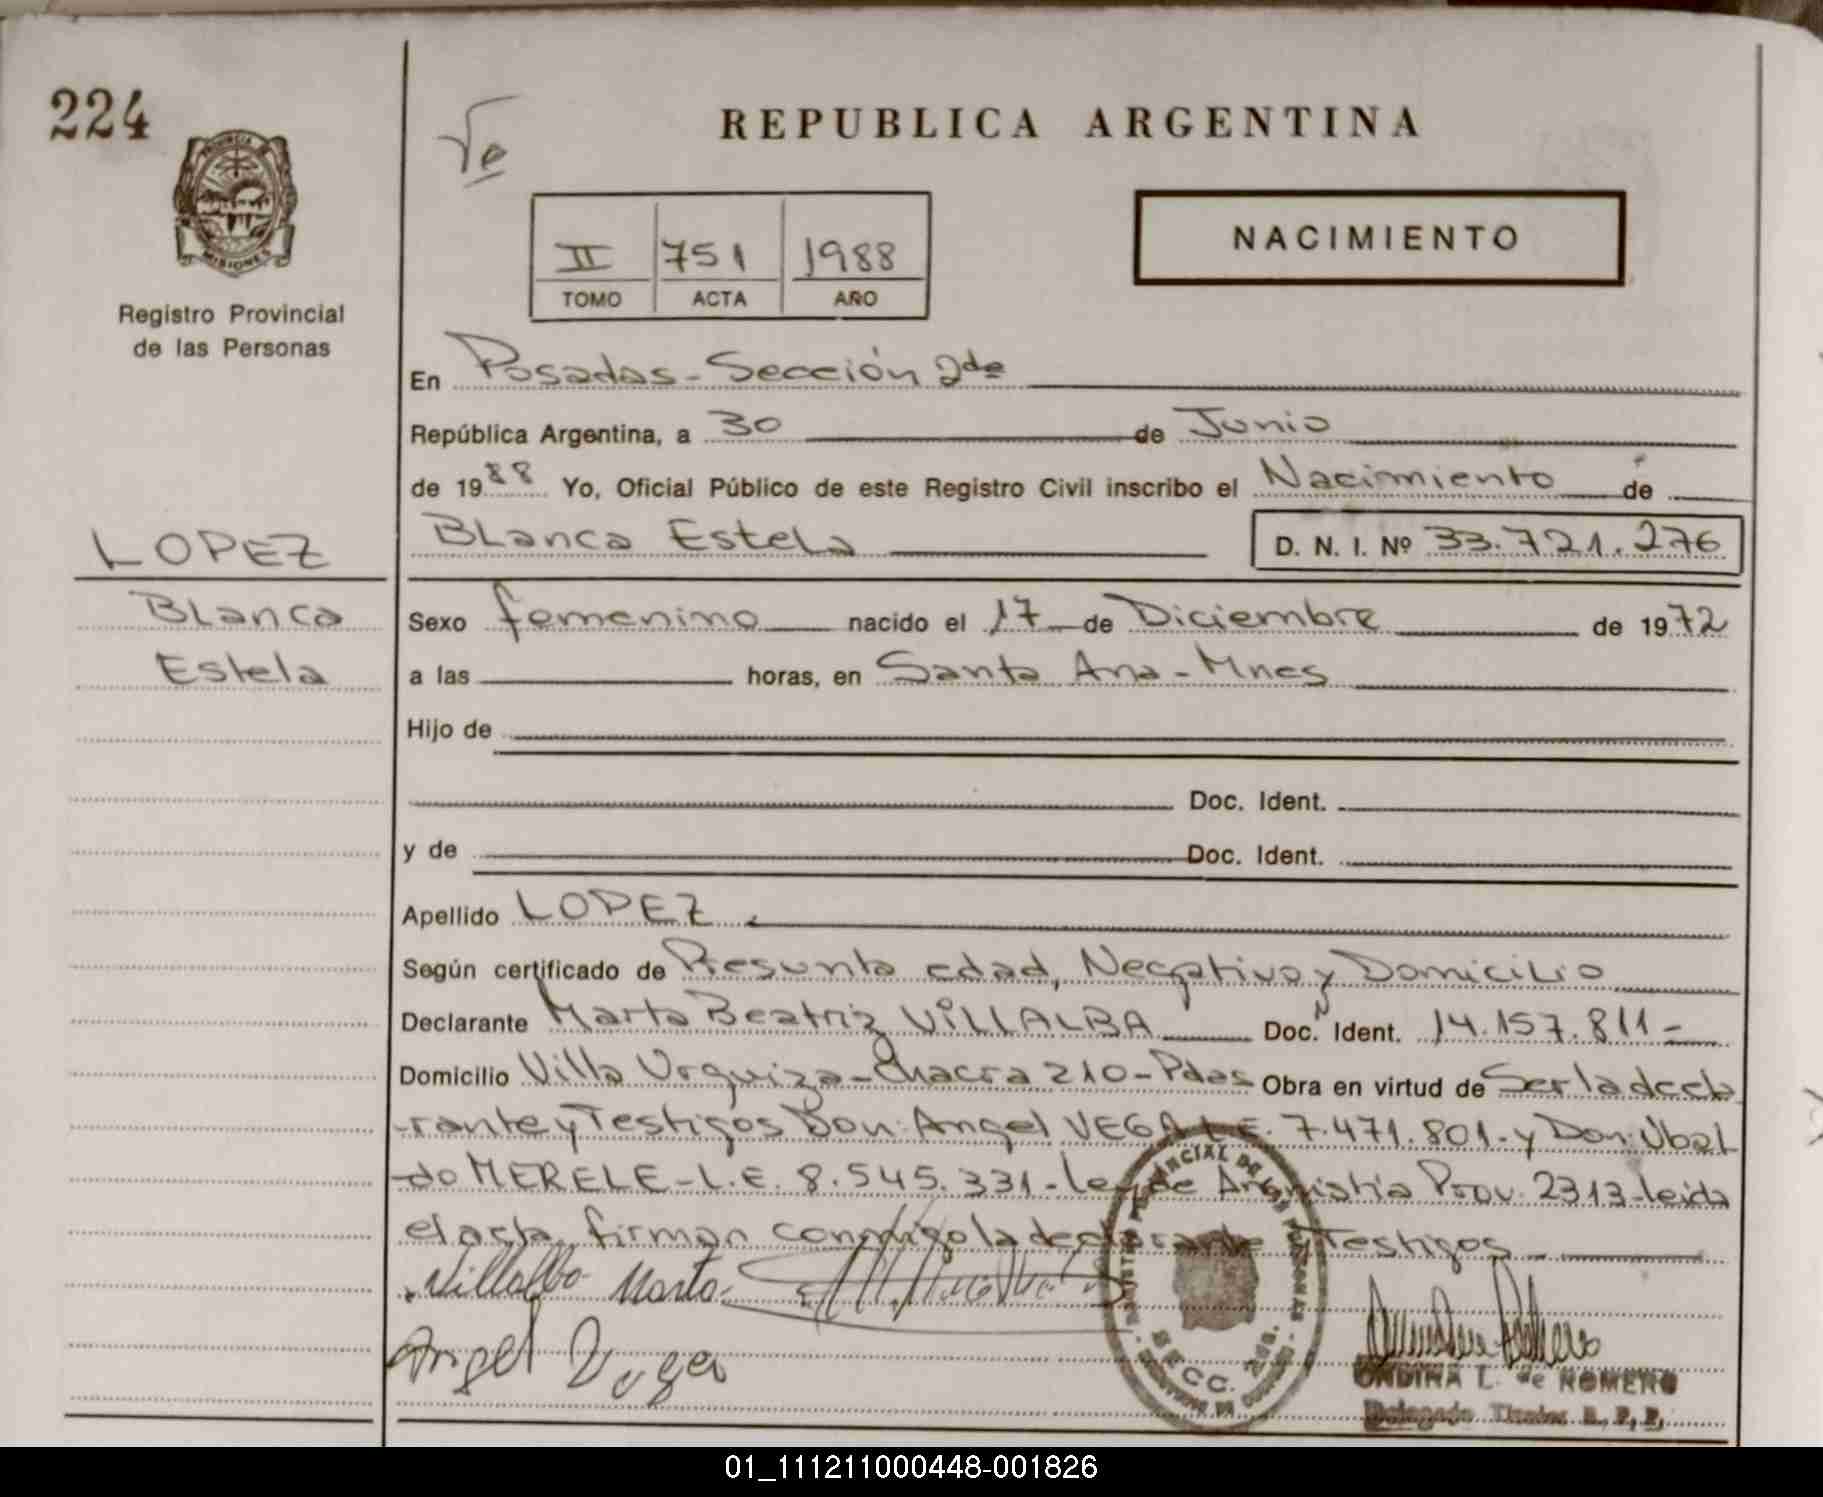 224
Vo
REPUBLICA ARGENTINA
PROVINCIA DE
MISIONES
Registro Provincial
de las Personas
II 751 1988
TOMO ACTA AÑO
NACIMIENTO
En Posadas - Sección 2da
República Argentina, a 30 de Junio
de 1988 Yo, Oficial Público de este Registro Civil inscribo el Nacimiento de
LOPEZ
Blanca Estela D. N. I. Nº 33.721.276
Blanca
Estela
Sexo femenino nacido el 17 de Diciembre de 1972
a las horas, en Santa Ana - Mnes
Hijo de
Doc. Ident.
y de Doc. Ident.
Apellido LOPEZ
Según certificado de Presunta edad, Negativo y Domicilio
Declarante Marta Beatriz VILLALBA Doc. Ident. 14.157.811-
Domicilio Villa Urquiza - Chacra 210 - Pdas Obra en virtud de Ser la decla
-rante y Testigos Don: Angel VEGA L.E. 7.471.801.- y Don: Ubal
-do MERELE - L.E. 8.545.331 - Ley de Amnistía Prov. 2313 - leida
el acta, firman conmigo la declarante y Testigos
Villalba Marta
Angel Vega
REGISTRO PROVINCIAL DE LAS PERSONAS
SECC. 2da.
ONDINA L. de ROMERO
Delegado Titular R. P. P.
01_111211000448-001826